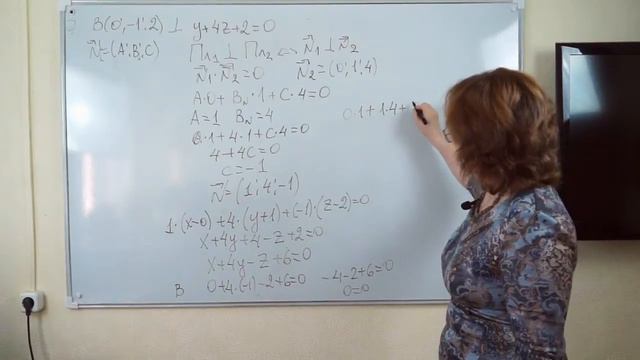 B(0;-1;2) ⊥ y+4z+2=0
N⃗₁=(A;B;C) Пл₁ ⊥ Пл₂ <=> N⃗₁ ⊥ N⃗₂
N⃗₁·N⃗₂=0 N⃗₂=(0;1;4)
A·0+B_N·1+C·4=0
0·1+1·4+
A=1 B_N=4
0·1+4·1+C·4=0
4+4C=0
C=-1
N⃗=(1;4;-1)
1·(x-0)+4·(y+1)+(-1)·(z-2)=0
x+4y+4-z+2=0
x+4y-z+6=0
B 0+4·(-1)-2+6=0 -4-2+6=0
0=0